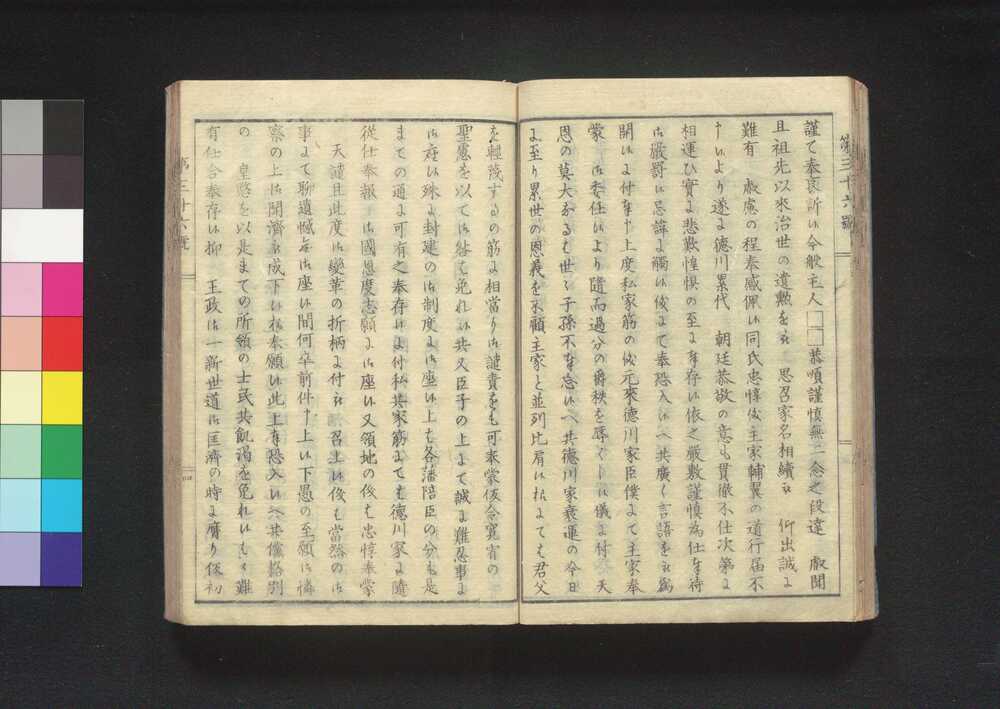 第三十六號
謹て奉哀訴候今般主人□□恭順謹慎無二念之段達　叡聞
且祖先以來治世の遺勲を被　思召家名相續被　仰出誠よ
難有　叡慮の程奉感佩候同氏忠惇儀主家輔翼の道行届不
申候より遂よ徳川累代　朝廷恭敬の意も貫徹不仕次第よ
相運ひ實よ悲歎惶惧の至よ奉存候依之嚴敷謹慎為仕奉待
御嚴罰候忌諱よ觸候儀よて奉恐入候へ共廣く言語を被為
開候よ付奉申上度私家筋の儀元來徳川家臣僕よて主家奉
蒙　御委任候より隨而過分の爵秩を辱ふし候儀よ付　天
恩の莫大なるも世々子孫不奉忘候へ共徳川家衰運の今日
よ至り累世の恩義を不顧主家と並列比肩候様よても君父
を輕蔑するの筋よ相當り御譴責をも可奉蒙仮令寛宥の
聖慮を以て御咎も免れ候共又臣子の上よて誠よ難忍事よ
御座候殊よ封建の御制度よ御座候上も各藩陪臣の分も是
まての通よ可有之奉存候よ付私共家筋よても徳川家よ隨
從仕奉報　御國恩度志願よ御座候又領地の儀も忠惇奉蒙
天譴且此度御變革の折柄よ付被　召上候儀も當然の御
事よて聊遺憾無御座候間何卒前件申上候下愚の至願御憐
察の上御聞濟被成下候様奉願候此上奉恐入候へ共儻格別
の　皇慜を以是まての所領の士民共飢渇を免れ候もゝ難
有仕合奉存候抑　王政御一新世道御匡濟の時よ膺り仮初
第三十六號